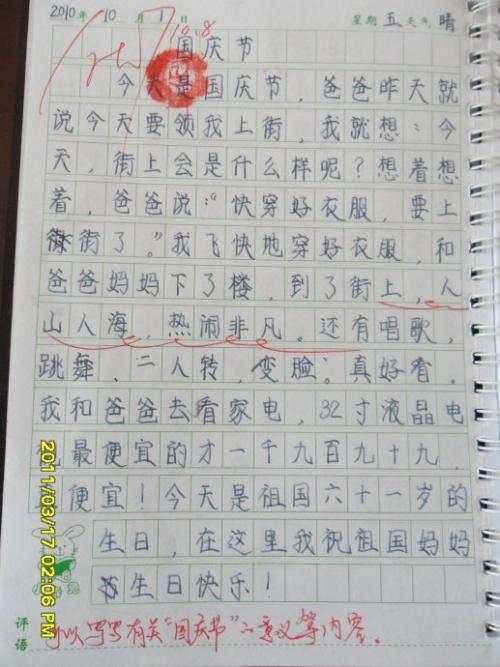 2010年 10月 1日 星期 五 天气 晴
10.8
国庆节
今天是国庆节，爸爸昨天就
说今天要领我上街，我就想：今
天，街上会是什么样呢？想着想
着，爸爸说：“快穿好衣服，要上
街了。”我飞快地穿好衣服，和
爸爸妈妈下了楼，到了街上，人
山人海，热闹非凡。还有唱歌，
跳舞、二人转，变脸。真好看。
我和爸爸去看家电，32寸液晶电
最便宜的才一千九百九十九，
便宜！今天是祖国六十一岁的
生日，在这里我祝祖国妈妈
生日快乐！
评语
可以写写有关“国庆节”的意义等内容。
2011/03/17 02:06 PM